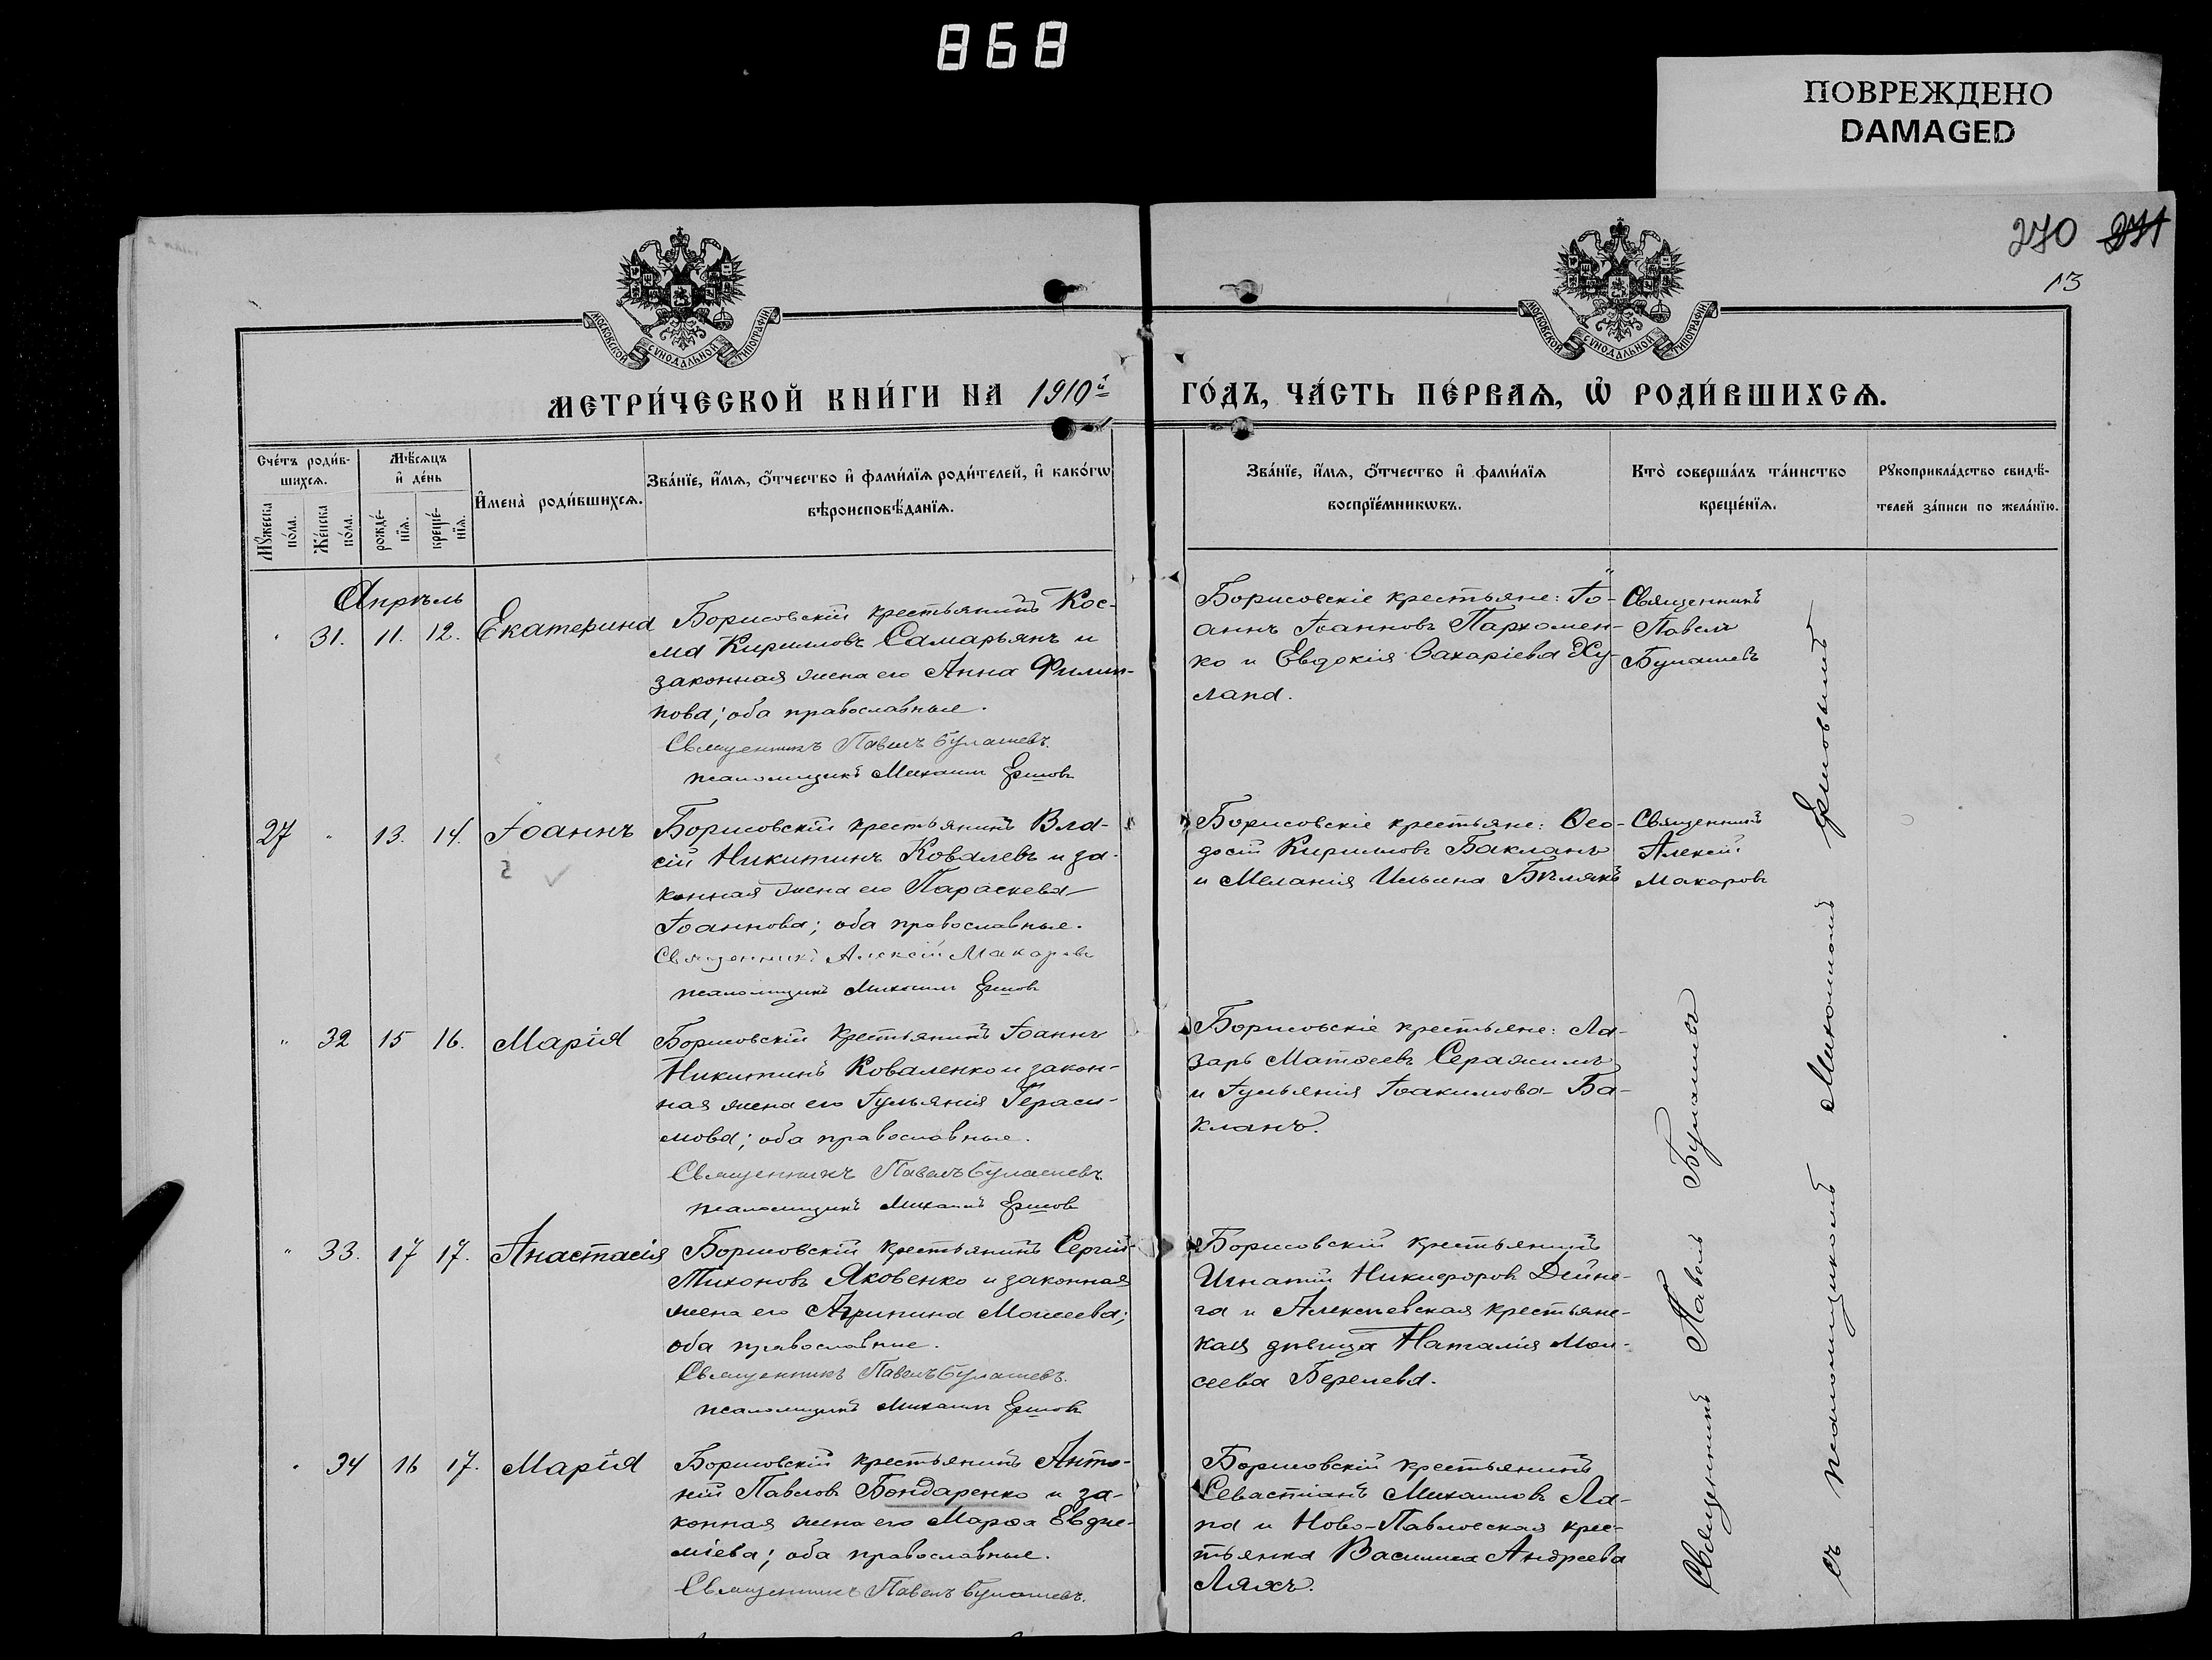 868
ПОВРЕЖДЕНО
DAMAGED
270 271
13
МОСКОВСКОЙ СѴНОДАЛЬНОЙ ТИПОГРАФІИ
МОСКОВСКОЙ СѴНОДАЛЬНОЙ ТИПОГРАФІИ
МЕТРИ́ЧЕСКОЙ КНИ́ГИ НА 1910й ГО́ДЪ, ЧА́СТЬ ПЕ́РВАѦ, Ѡ҆ РОДИ́ВШИХСѦ.
Сче́тъ роди́в-
шихсѧ.
Мꙋ́жеска по́ла.
Же́нска по́ла.
Мѣ́сѧцъ
и҆ де́нь
рожде́-
нїѧ.
креще́-
нїѧ.
И҆мена̀ роди́вшихсѧ.
Зва́нїе, и҆́мѧ, ѻ҆́тчество и҆ фами́лїѧ роди́телей, и҆ како́гѡ
вѣроисповѣ́данїѧ.
Зва́нїе, и҆́мѧ, ѻ҆́тчество и҆ фами́лїѧ
воспрїе́мникѡвъ.
Кто̀ соверша́лъ та́инство
креще́нїѧ.
Рꙋкоприкла́дство свидѣ́-
телей за́писи по жела́нїю.
Апрѣль
" 31. 11. 12. Екатерина
Борисовскій крестьянинъ Кос-
ма Кирилловъ Самарьянъ и
законная жена его Анна Филип-
пова; оба православные.
Священникъ Павелъ Булашевъ.
псаломщикъ Михаилъ Ершовъ
Борисовскіе крестьяне: Іо-
аннъ Іоанновъ Пархомен-
ко и Евдокія Захаріева Ху-
лапа.
Священникъ
Павелъ
Булашевъ
27 " 13. 14. Іоаннъ
2
Борисовскій крестьянинъ Вла-
сій Никитинъ Ковалевъ и за-
конная жена его Параскева
Іоаннова; оба православные.
Священникъ Алексій Макаровъ
псаломщикъ Михаилъ Ершовъ
Борисовскіе крестьяне: Ѳео-
досій Кирилловъ Бакланъ
и Меланія Ильина Бѣлякъ
Священникъ
Алексій
Макаровъ
" 32 15 16. Марія
Борисовскій крестьянинъ Іоаннъ
Никитинъ Коваленко и закон-
ная жена его Іульянія Гераси-
мова; оба православные.
Священникъ Павелъ Булашевъ.
псаломщикъ Михаилъ Ершовъ
Борисовскіе крестьяне: Ла-
зарь Матѳеевъ Серажимъ
и Іульянія Іоакимова Ба-
кланъ.
" 33. 17 17. Анастасія
Борисовскій крестьянинъ Сергій
Тихоновъ Яковенко и законная
жена его Агрипина Моисеева;
оба православные.
Священникъ Павелъ Булашевъ.
псаломщикъ Михаилъ Ершовъ
Борисовскій крестьянинъ
Игнатій Никифоровъ Дейне-
га и Алексѣевская крестьянс-
кая дѣвица Наталія Мои-
сеева Берелева.
" 34 16 17. Марія
Борисовскій крестьянинъ Анто-
ній Павловъ Бондаренко и за-
конная жена его Марѳа Евдо-
оба православные.
Священникъ Павелъ Булашевъ.
Борисовскій крестьянинъ
Севастіанъ Михаиловъ Ла-
па и Ново-Павловская крес-
тьянка Василиса Андреева
Ляхъ.
Священникъ Павелъ Булашевъ
съ псаломщикомъ Михаиломъ Ершовымъ